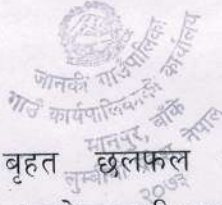 जानकी गाउँपालिका
गाउँ कार्यपालिकाको कार्यालय
मानपुर, बाँके
नेपाल
२०७३
बृहत छलफल